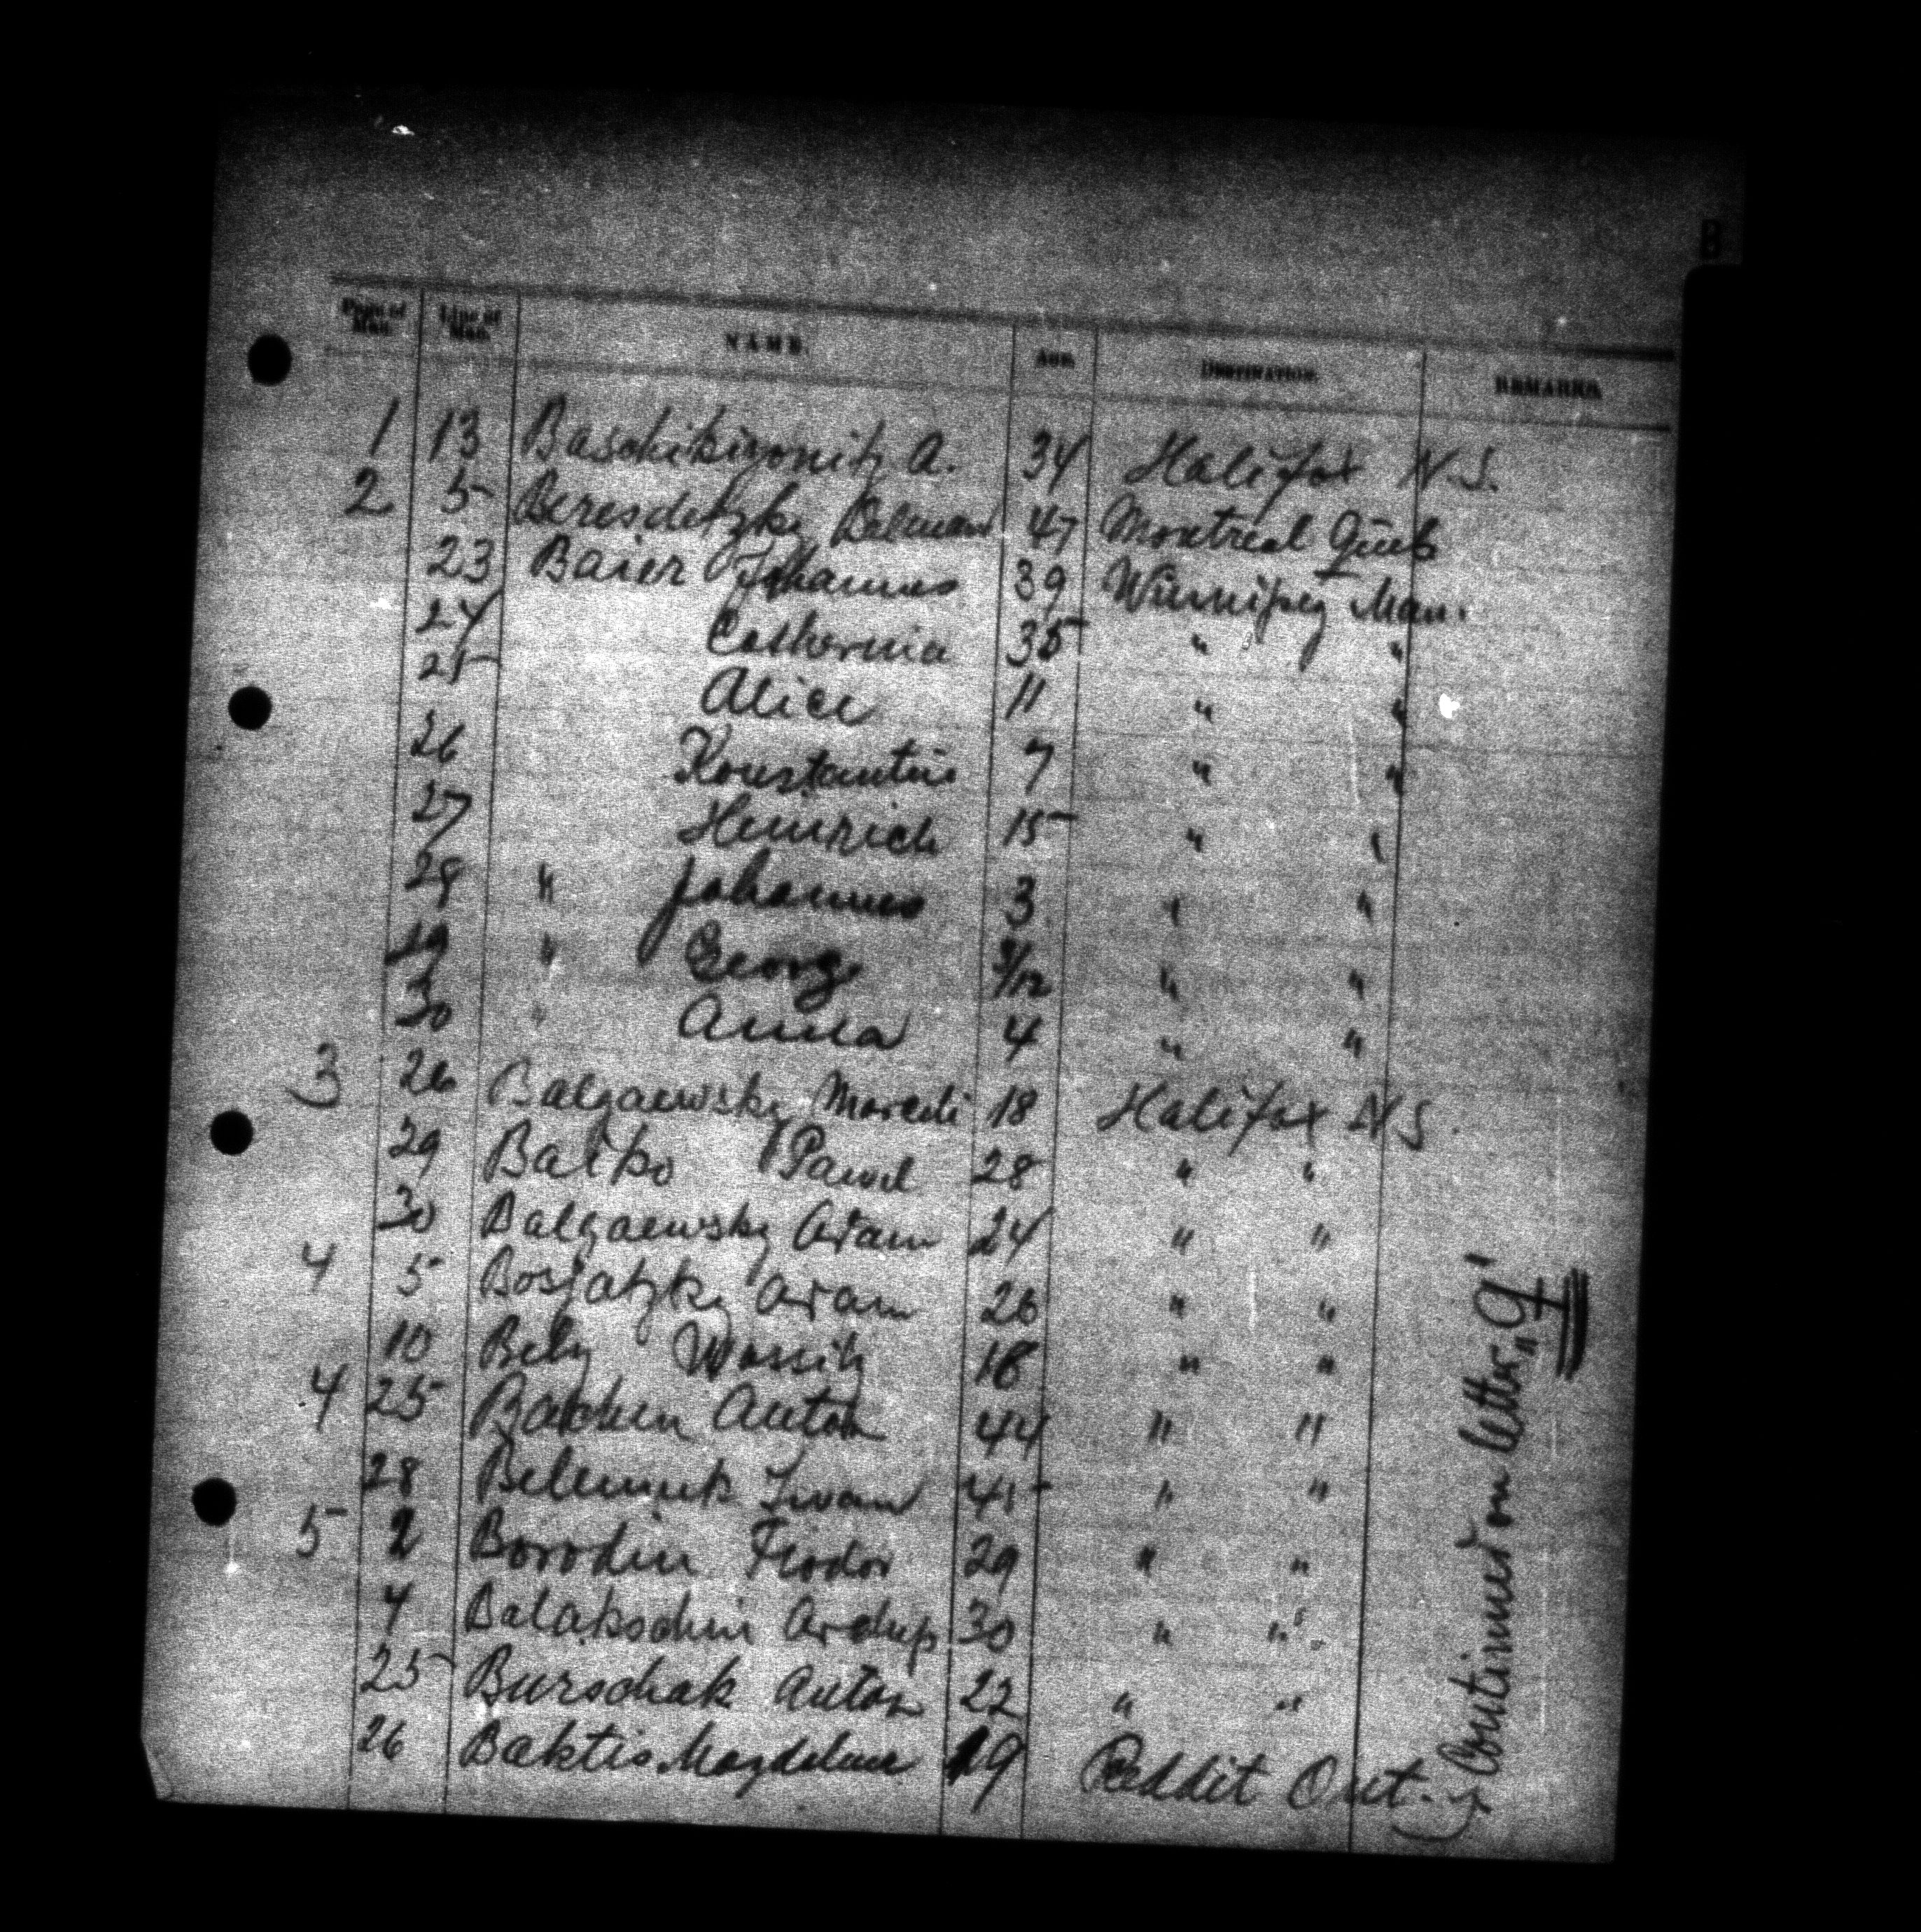 B
Page of Man. Line of Man. NAME. AGE. DESTINATION. REMARKS.
1 13 Baschikizonitz A. 34 Halifax N.S.
2 5 Beresdetzky 47 Montreal Queb
23 Baier Johannes 39 Winnipeg Man.
24 Catherina 35 " "
25 Alice 11 " "
26 Konstantin 7 " "
27 Heinrich 15 " "
28 " Johannes 3 " "
29 " Georg /12 " "
30 " Anna 4 " "
3 26 Balgaewsky 18 Halifax N.S.
29 Batko Pawel 28 " "
30 Balgaewsky Adam 24 " "
4 5 Bosjatzky Adam 26 " "
10 Bely Wassily 18 " "
4 25 Anton 44 " "
28 Iwan " "
5 2 Borodin Fiodor 29 " "
4 Balakschin 30 " "
25 Burschak Anton 22 " "
26 Baktis Magdelene 19 Reddit Ont.
Continued on letter